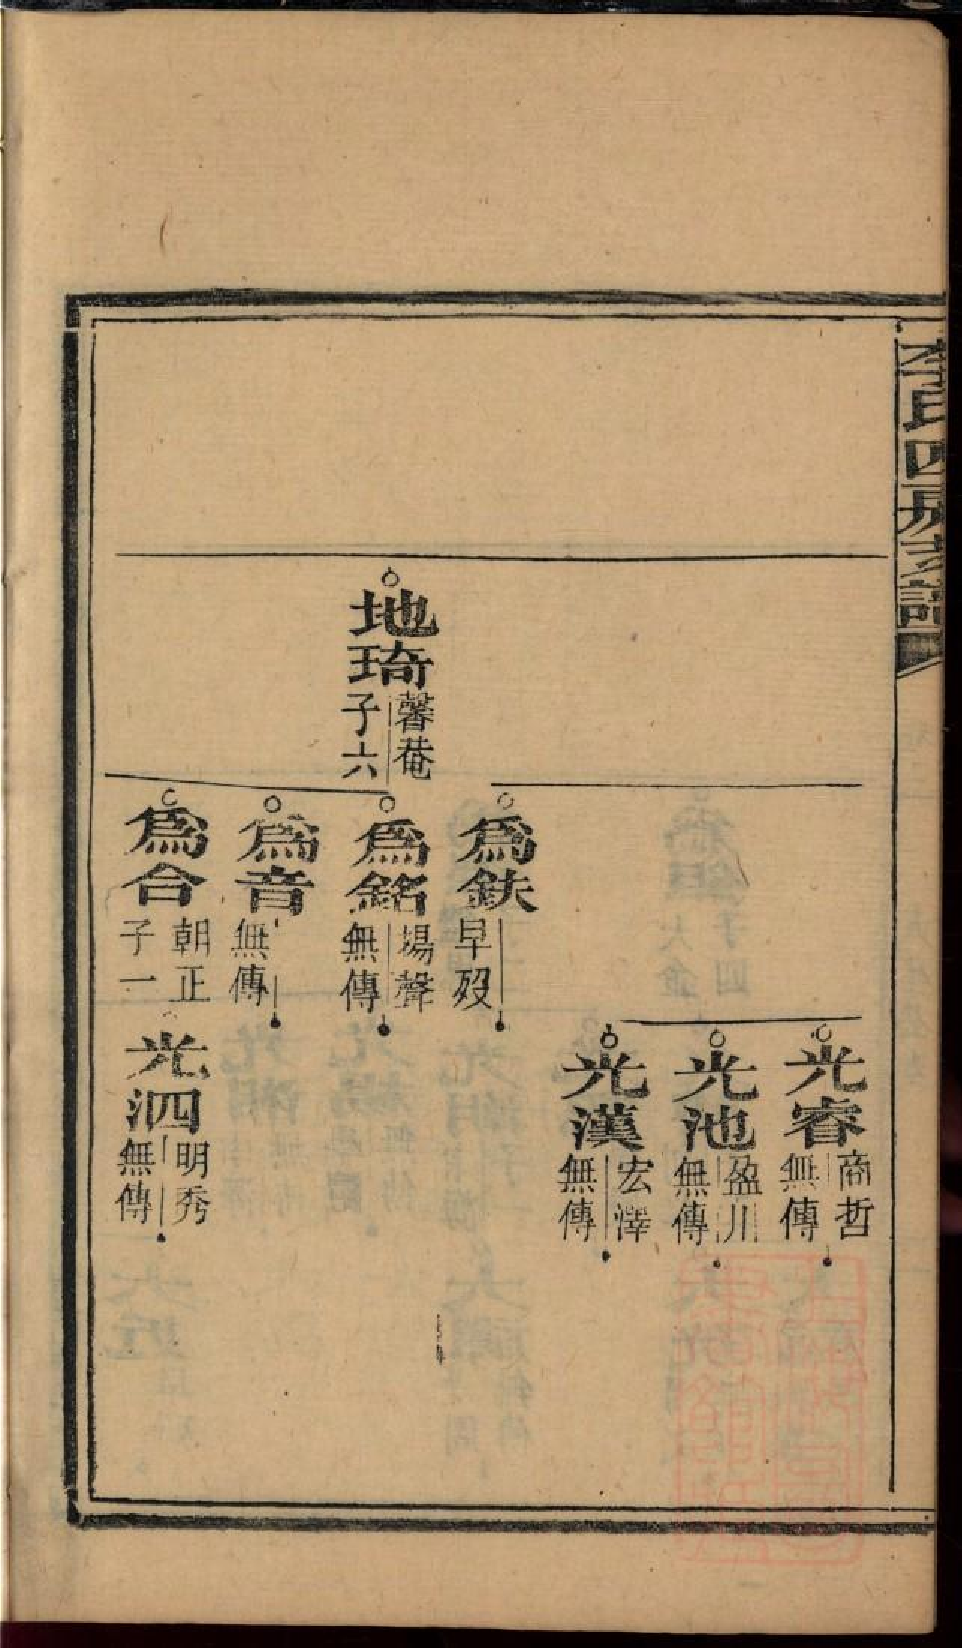 李氏四房支譜
地琦
馨菴
子六
為鈇
早歿
為銘
揚聲
無傳
為音
無傳
為合
朝正
子一
光睿
商哲
無傳
光池
盈川
無傳
光漢
宏澤
無傳
光泗
明秀
無傳